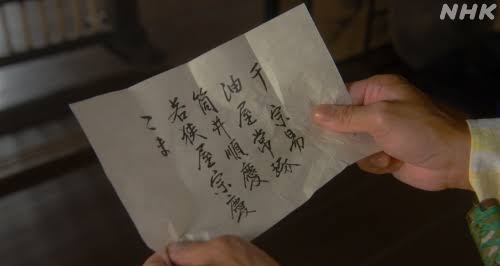 NHK
千宗易
油屋常琢
筒井順慶
若狭屋宗慶
こま